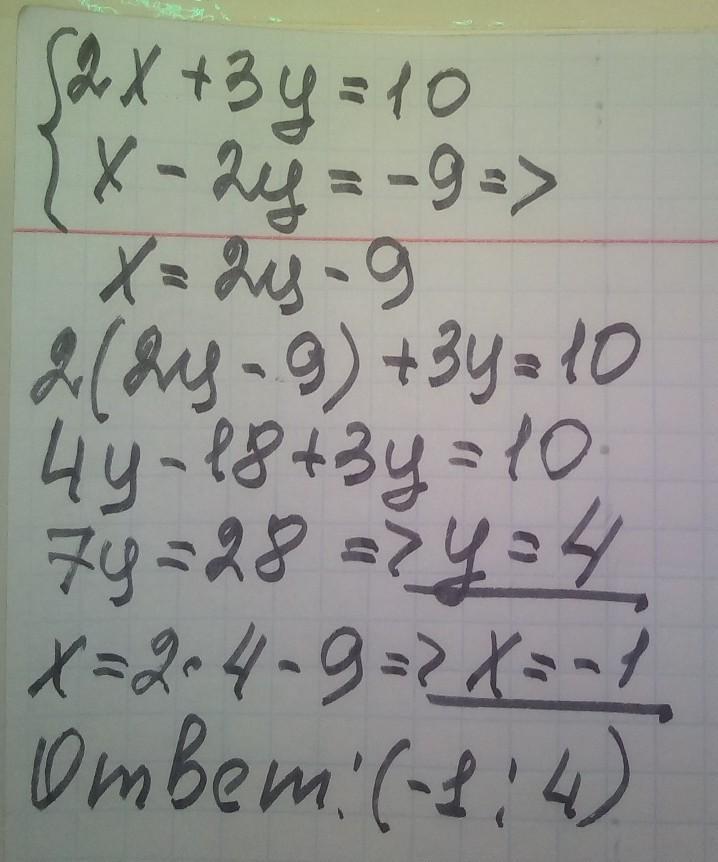 {2x + 3y = 10
x - 2y = -9 =>
x = 2y - 9
2(2y - 9) + 3y = 10
4y - 18 + 3y = 10
7y = 28 => y = 4
x = 2 · 4 - 9 => x = -1
Ответ: (-1; 4)